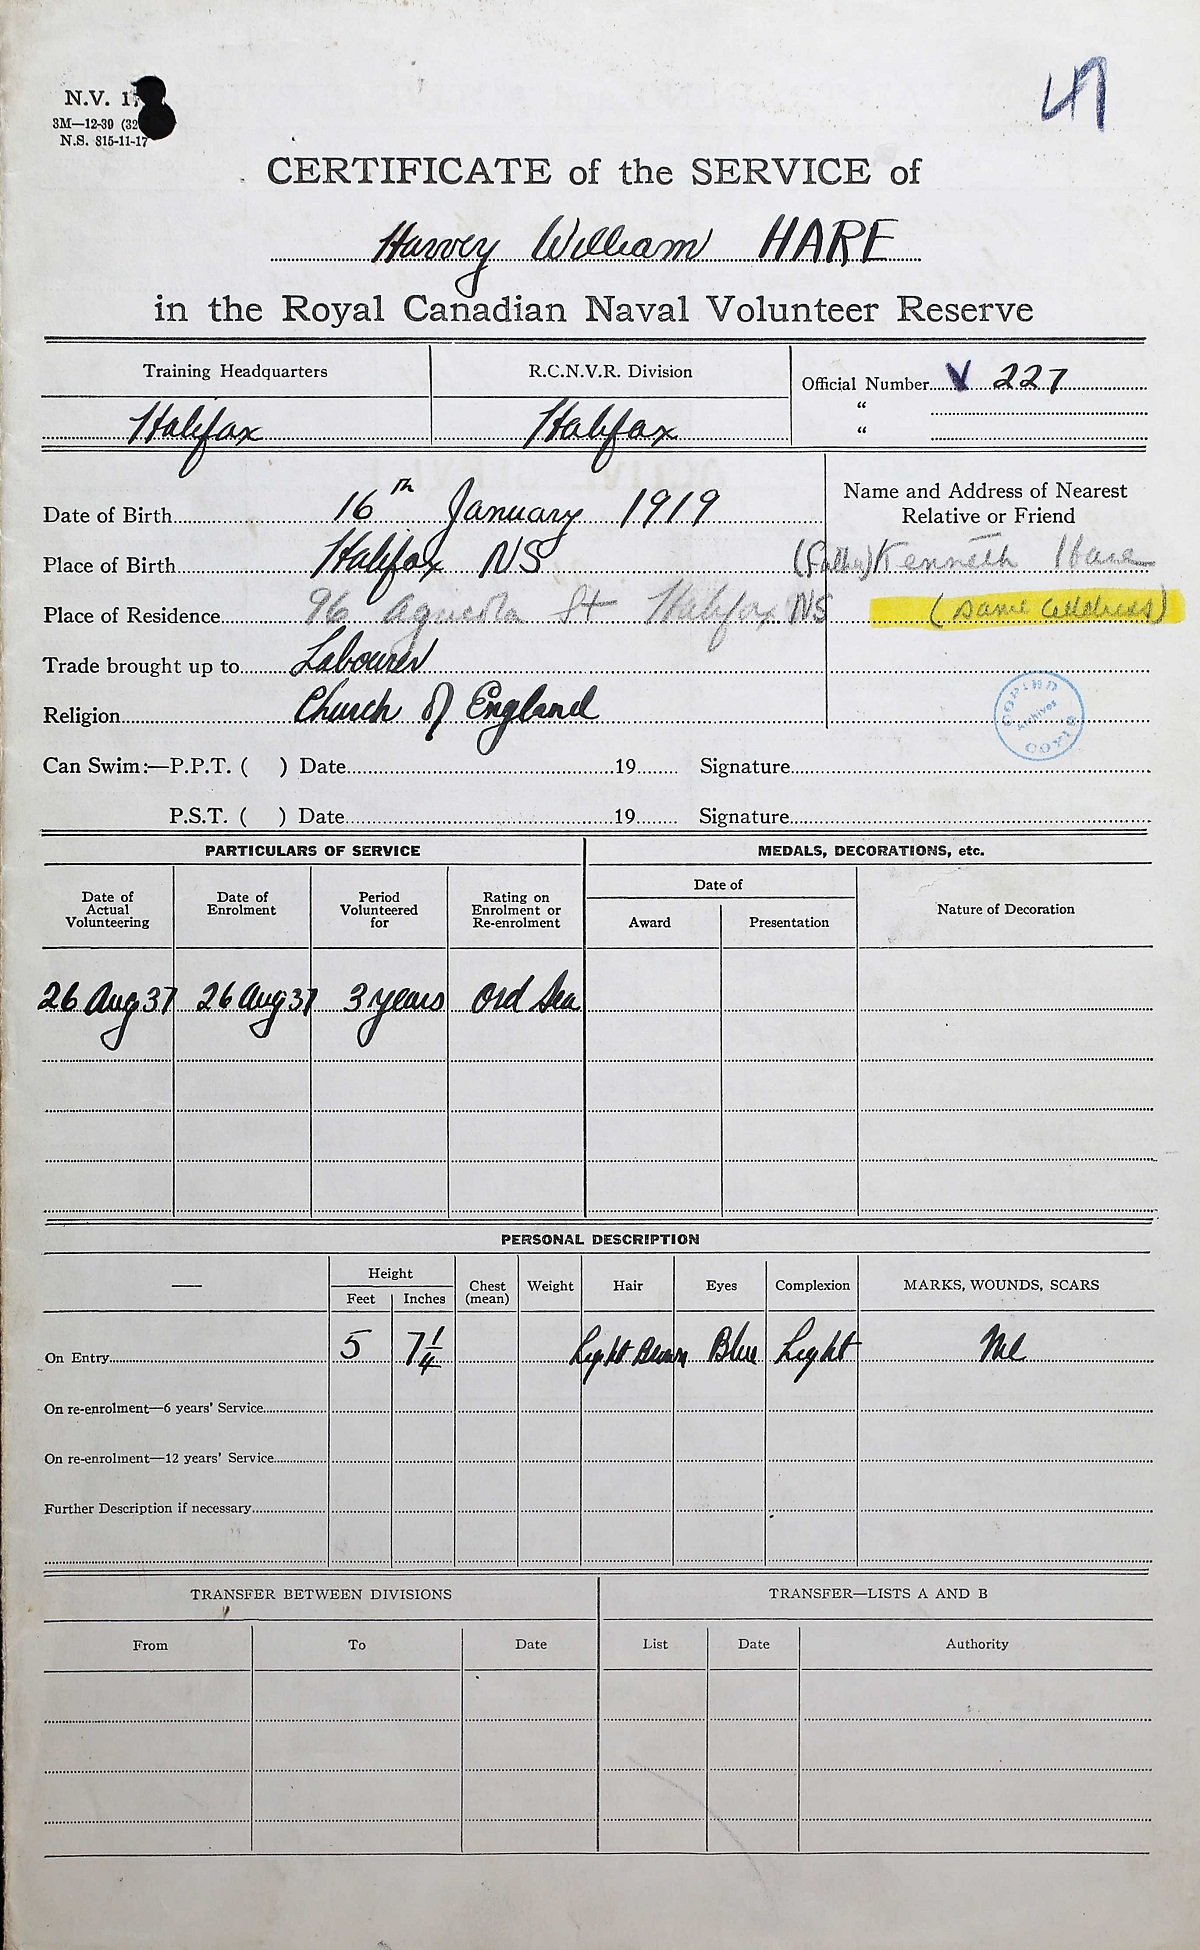 47
N.V. 17
3M—12-39 (32
N.S. 815-11-17
CERTIFICATE of the SERVICE of
Harvey William HARE
in the Royal Canadian Naval Volunteer Reserve
Training Headquarters R.C.N.V.R. Division Official Number V 227
"
Halifax Halifax "
Name and Address of Nearest Relative or Friend
Date of Birth 16th January 1919
Place of Birth Halifax NS (Father) Kenneth Hare
Place of Residence 96 Agricola St Halifax NS (same address)
Trade brought up to Labourer
Religion Church of England
COPIED Archives
Can Swim:—P.P.T. ( ) Date 19 Signature
P.S.T. ( ) Date 19 Signature
PARTICULARS OF SERVICE MEDALS, DECORATIONS, etc.
Date of Actual Volunteering Date of Enrolment Period Volunteered for Rating on Enrolment or Re-enrolment Date of Nature of Decoration
Award Presentation
26 Aug 37 26 Aug 37 3 years Ord Sea
PERSONAL DESCRIPTION
— Height Chest (mean) Weight Hair Eyes Complexion MARKS, WOUNDS, SCARS
Feet Inches
On Entry 5 7 1/4 Light Brown Blue Light Nil
On re-enrolment—6 years' Service
On re-enrolment—12 years' Service
Further Description if necessary
TRANSFER BETWEEN DIVISIONS TRANSFER—LISTS A AND B
From To Date List Date Authority